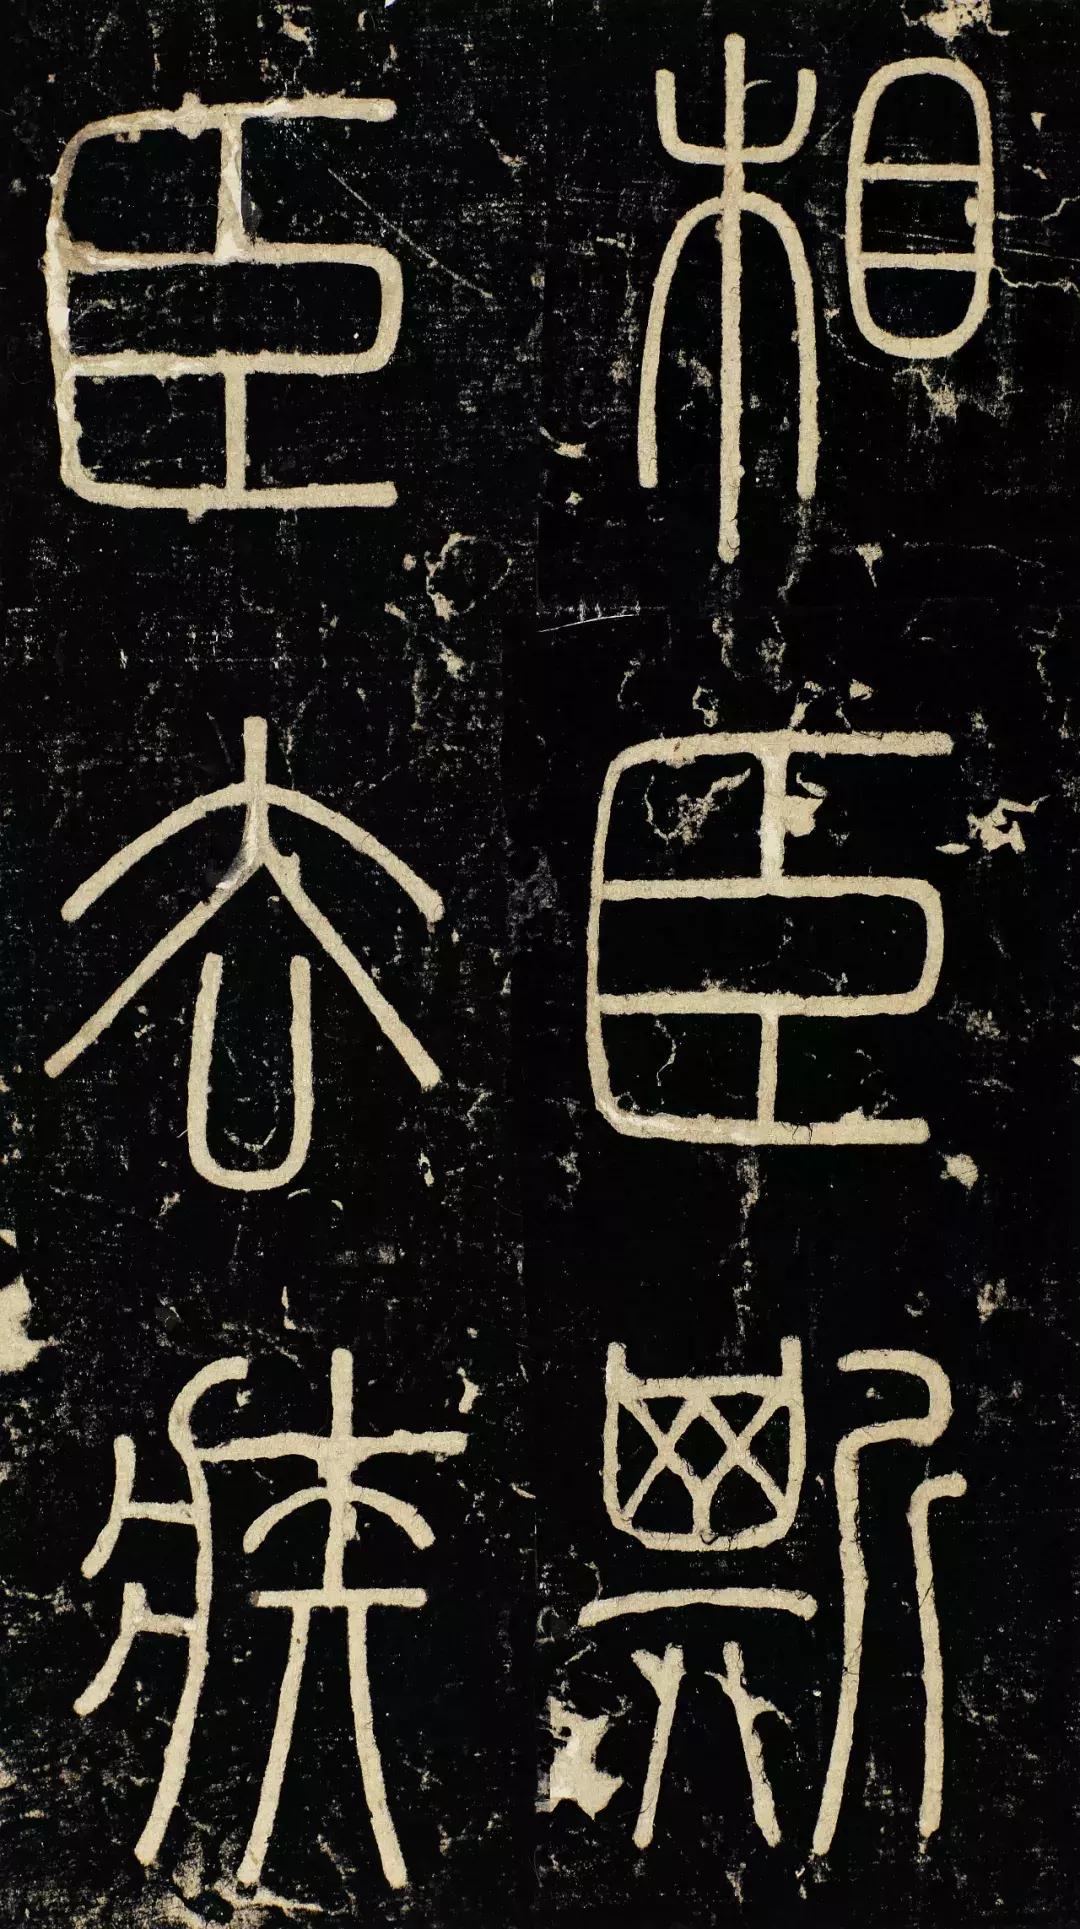 相臣斯
臣去疾